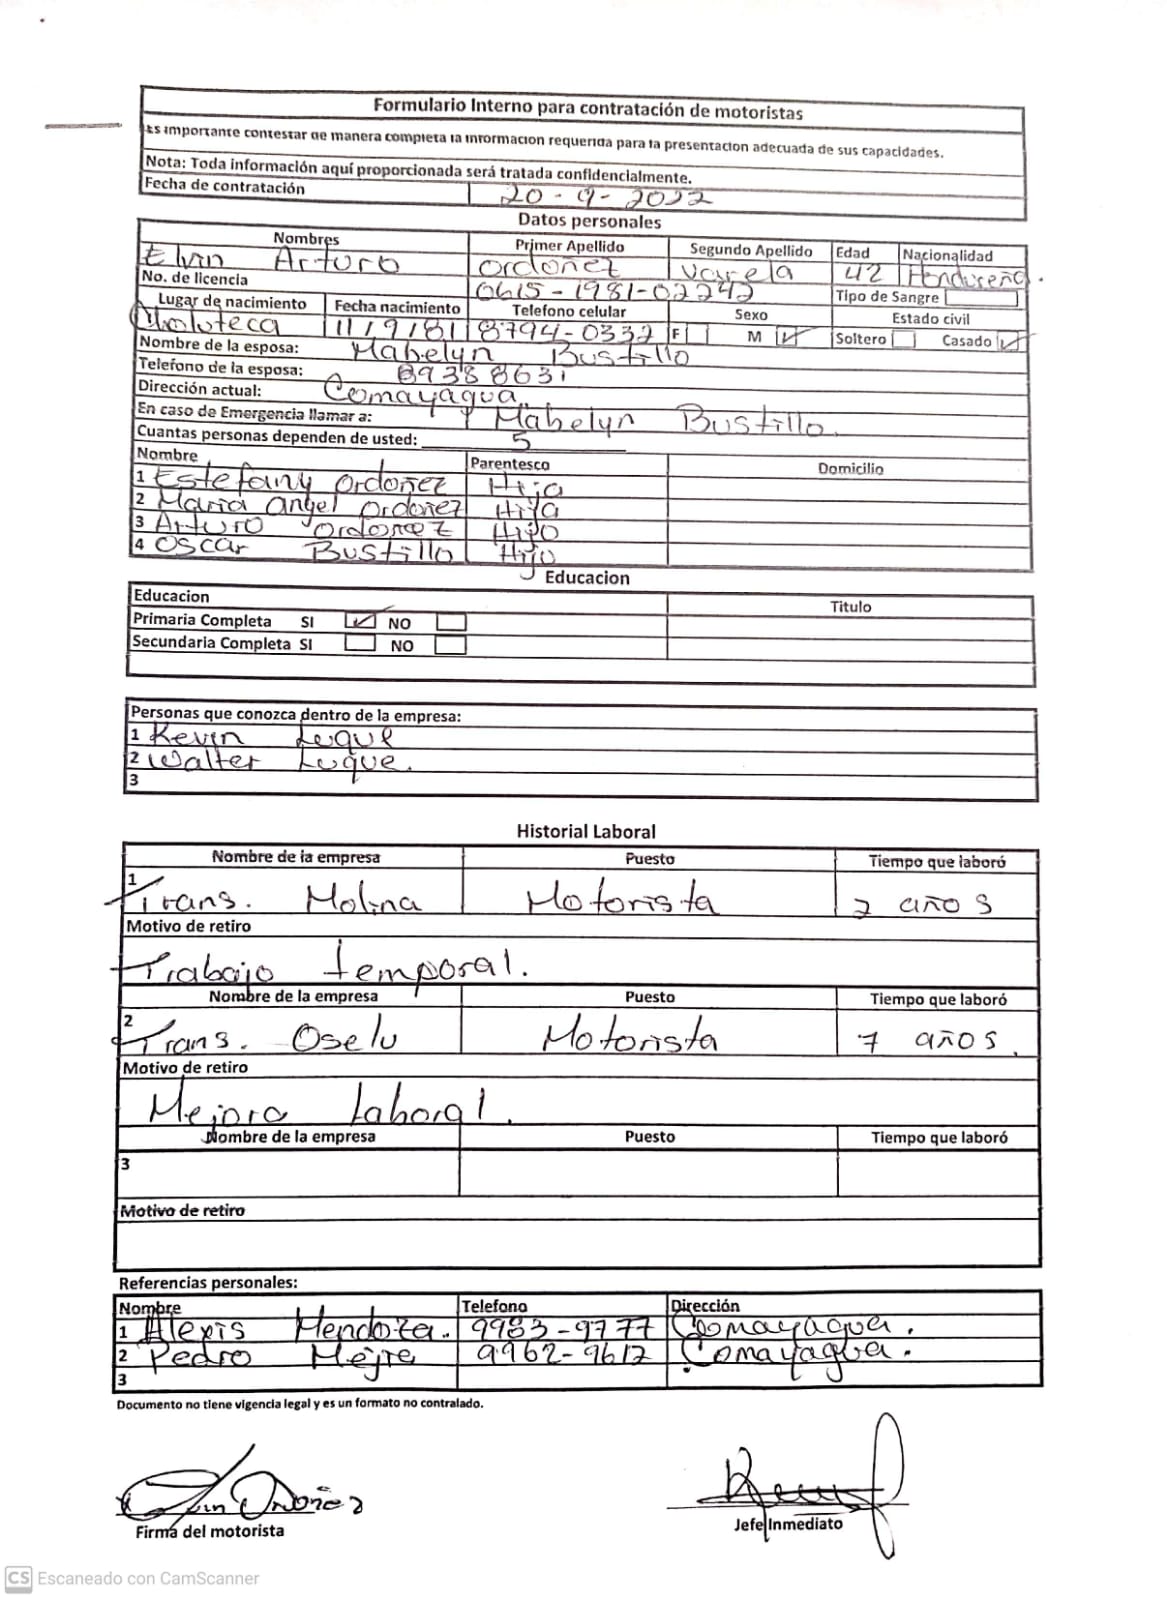 Formulario Interno para contratación de motoristas
Es importante contestar de manera completa la informacion requerida para la presentacion adecuada de sus capacidades.
Nota: Toda información aquí proporcionada será tratada confidencialmente.
Fecha de contratación 20-9-2022
Datos personales
Nombres Primer Apellido Segundo Apellido Edad Nacionalidad
Elvin Arturo Ordoñez Varela 42 Hondureño.
No. de licencia 0615-1981-02242 Tipo de Sangre
Lugar de nacimiento Fecha nacimiento Telefono celular Sexo Estado civil
Choluteca 11/9/81 8794-0332 F M Soltero Casado
Nombre de la esposa: Mabelyn Bustillo
Telefono de la esposa: 89388631
Dirección actual: Comayagua
En caso de Emergencia llamar a: Mabelyn Bustillo.
Cuantas personas dependen de usted: 5
Nombre Parentesco Domicilio
1 Estefany Ordoñez Hija
2 Maria Angel Ordoñez Hija
3 Arturo Ordoñez Hijo
4 Oscar Bustillo Hijo
Educacion
Educacion Titulo
Primaria Completa SI NO
Secundaria Completa SI NO
Personas que conozca dentro de la empresa:
1 Kevin Luque
2 Walter Luque.
3
Historial Laboral
Nombre de la empresa Puesto Tiempo que laboró
1
Trans. Molina Motorista 2 años
Motivo de retiro
Trabajo temporal.
Nombre de la empresa Puesto Tiempo que laboró
2
Trans. Oselu Motorista 7 años.
Motivo de retiro
Mejora Laboral.
Nombre de la empresa Puesto Tiempo que laboró
3
Motivo de retiro
Referencias personales:
Nombre Telefono Dirección
1 Alexis Mendoza. 9983-9777 Comayagua.
2 Pedro 9962-9612 Comayagua.
3
Documento no tiene vigencia legal y es un formato no contralado.
Ordoñez
Firma del motorista Jefe Inmediato
CS Escaneado con CamScanner